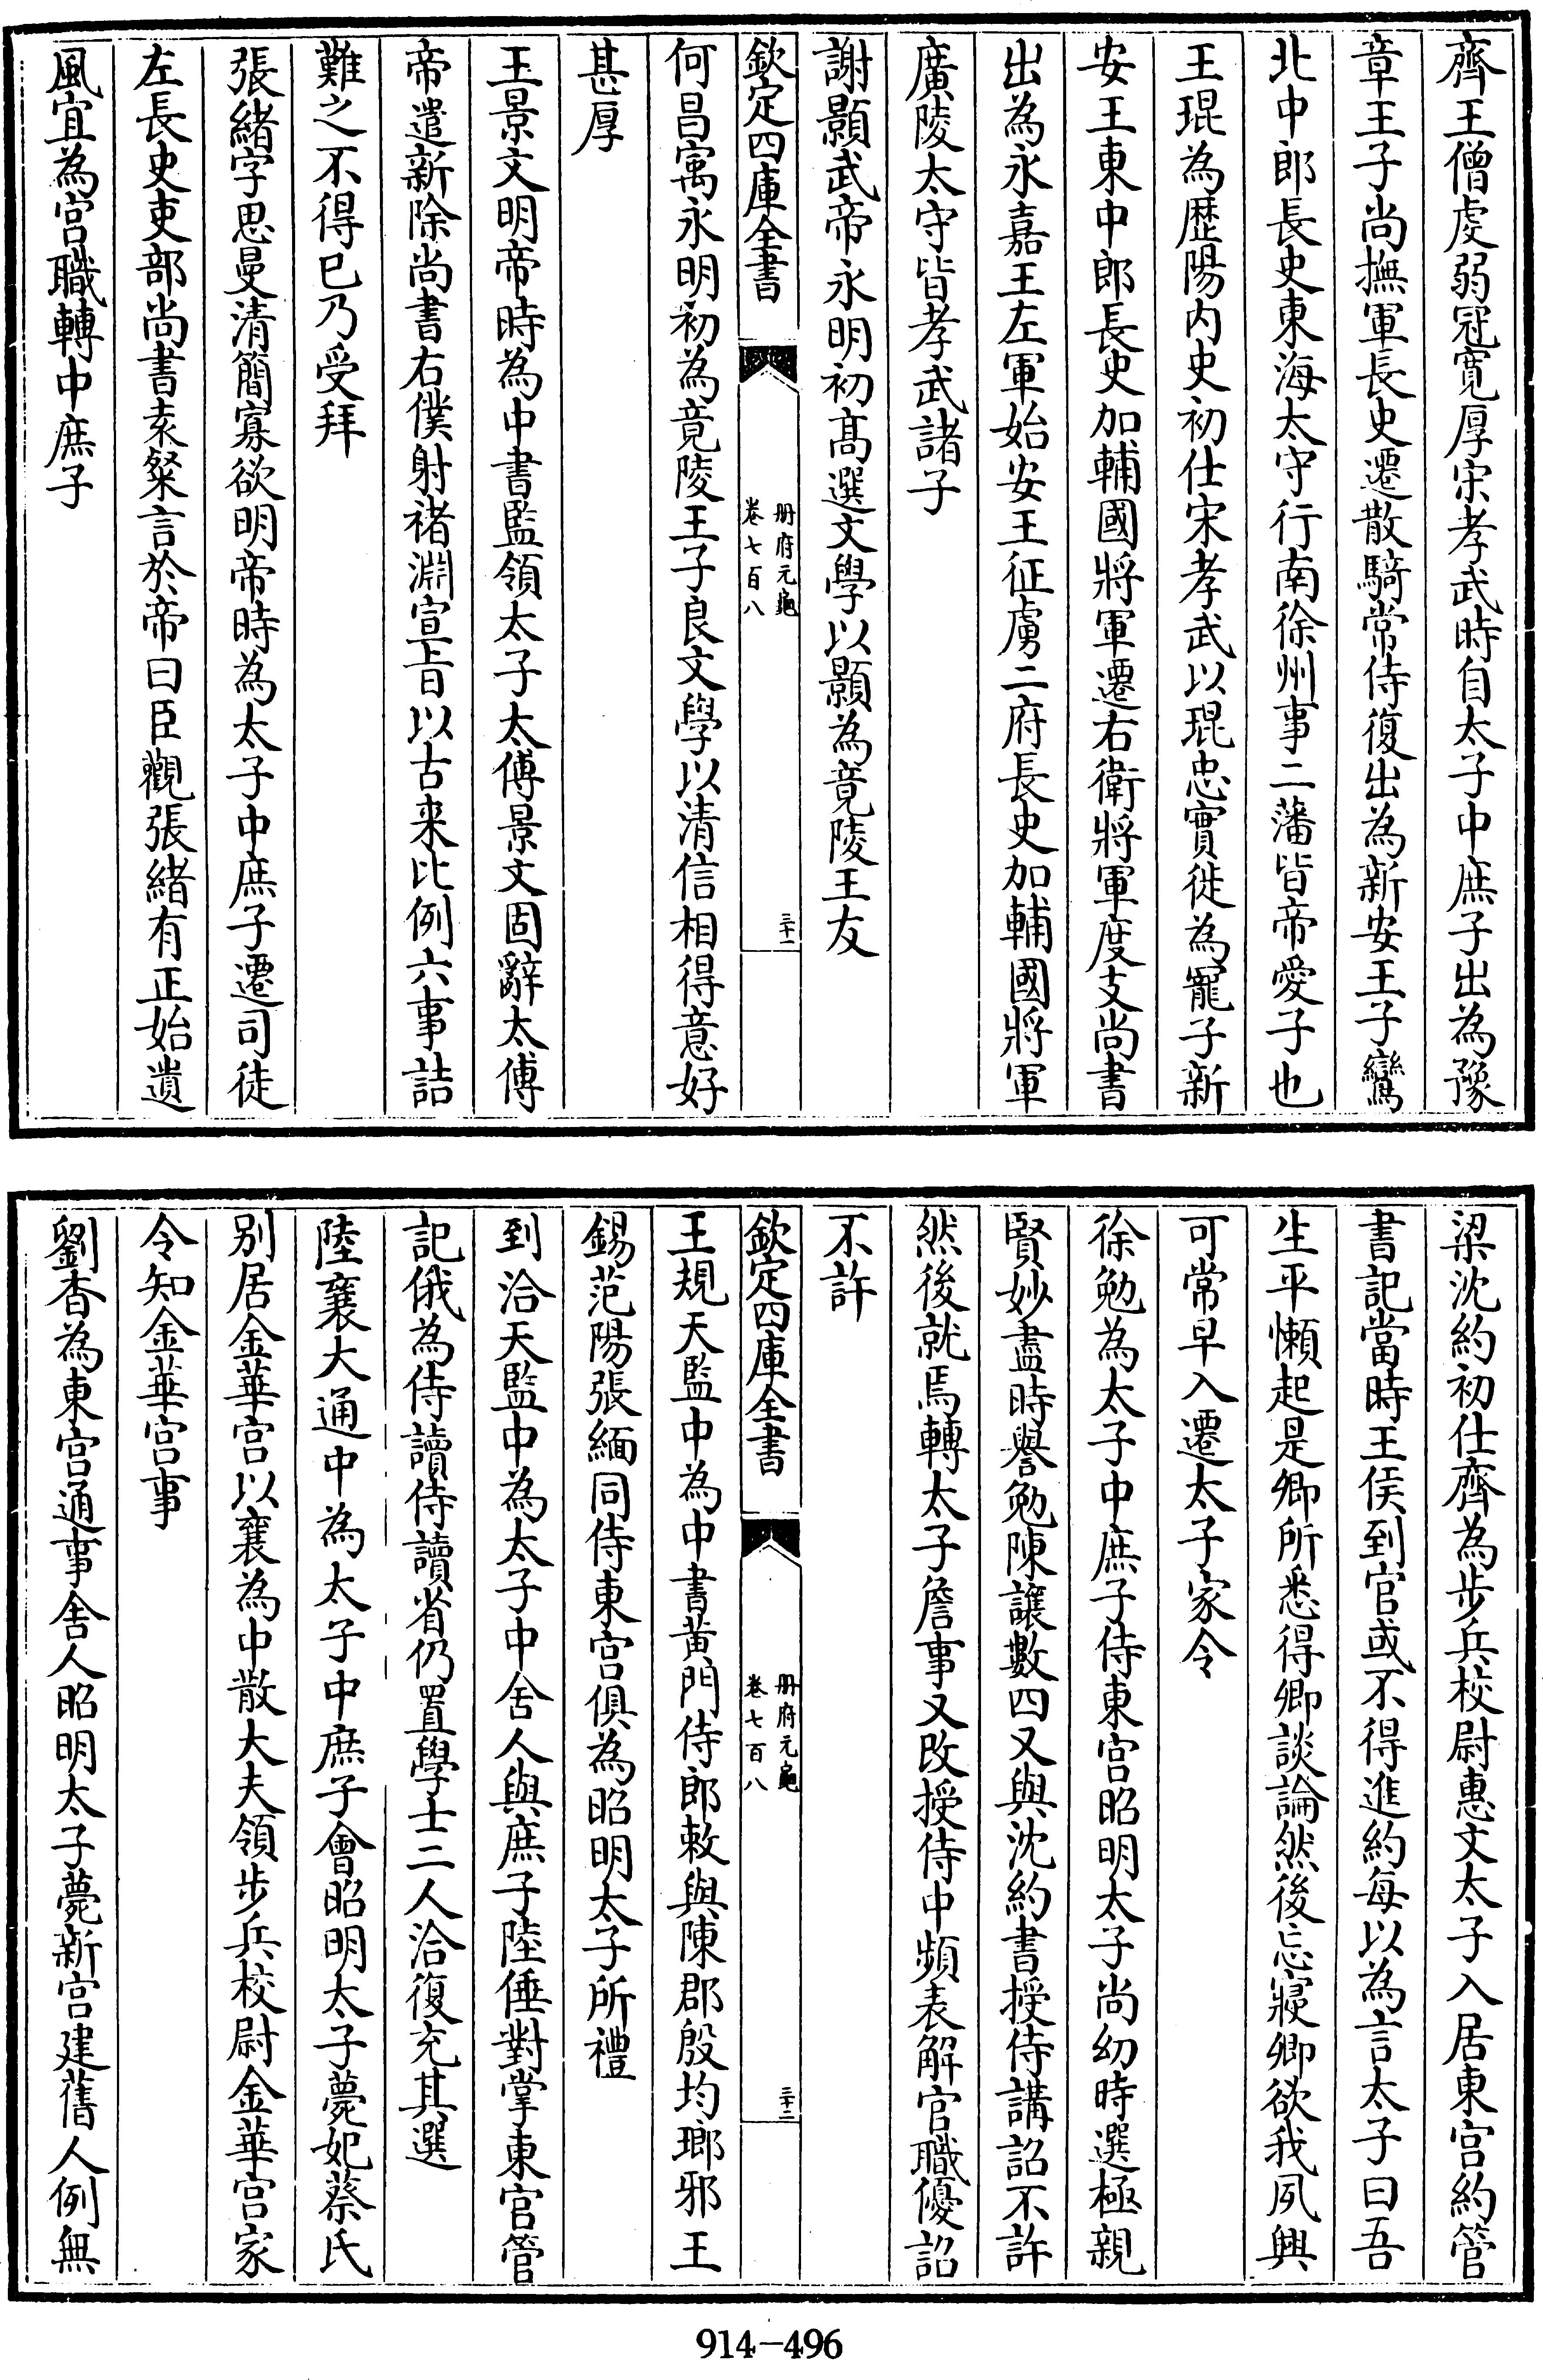 齊王僧虔弱冠寛厚宋孝武時自太子中庶子出為豫
章王子尚撫軍長史遷散騎常侍復出為新安王子鸞
北中郎長史東海太守行南徐州事二藩皆帝愛子也
王琨為歴陽内史初仕宋孝武以琨忠實徙為寵子新
安王東中郎長史加輔國將軍遷右衛將軍度支尚書
出為永嘉王左軍始安王征虜二府長史加輔國將軍
廣陵太守皆孝武諸子
謝顥武帝永明初髙選文學以顥為竟陵王友
欽定四庫全書
册府元龜
卷七百八
三十一
何昌㝢永明初為竟陵王子良文學以清信相得意好
甚厚
王景文明帝時為中書監領太子太傅景文固辭太傅
帝遣新除尚書右僕射褚淵宣㫖以古来比例六事詰
難之不得已乃受拜
張緒字思曼清簡寡欲明帝時為太子中庶子遷司徒
左長史吏部尚書袁粲言於帝曰臣觀張緒有正始遺
風宜為宫職轉中庶子
梁沈約初仕齊為步兵校尉惠文太子入居東宫約管
書記當時王侯到官或不得進約每以為言太子曰吾
生平懶起是卿所悉得卿談論然後忘寢卿欲我夙興
可常早入遷太子家令
徐勉為太子中庶子侍東宫昭明太子尚幼時選極親
賢妙盡時譽勉陳讓數四又與沈約書授侍講詔不許
然後就焉轉太子詹事又改授侍中頻表解官職優詔
不許
欽定四庫全書
册府元龜
卷七百八
三十二
王規天監中為中書黄門侍郎敕與陳郡殷均瑯邪王
錫范陽張緬同侍東宫俱為昭明太子所禮
到洽天監中為太子中舍人與庶子陸倕對掌東官管
記俄為侍讀侍讀省仍置學士二人洽復充其選
陸襄大通中為太子中庶子會昭明太子薨妃蔡氏
别居金華宫以襄為中散大夫領步兵校尉金華宫家
令知金華宫事
劉杳為東宫通事舍人昭明太子薨新宫建舊人例無
914-496